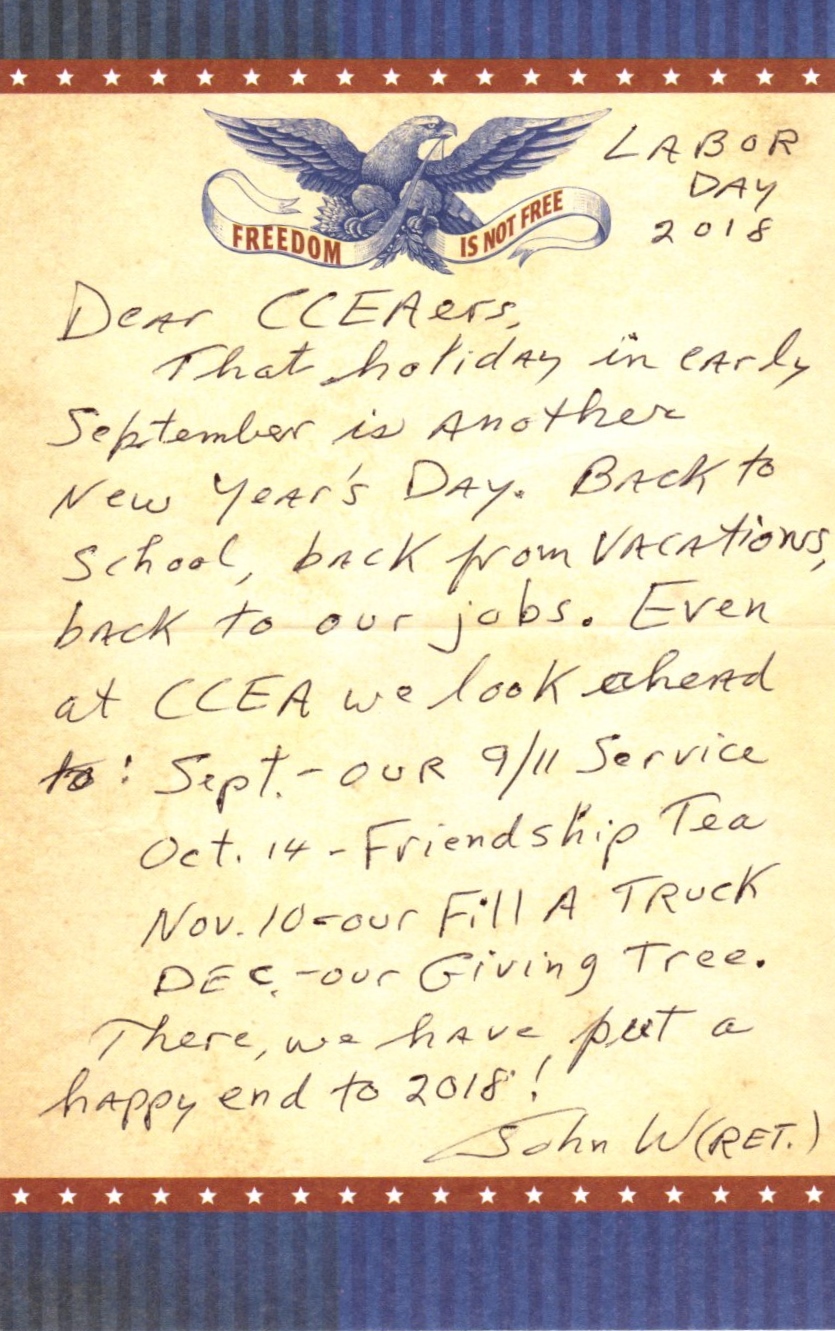 LABOR
DAY
2018
FREEDOM IS NOT FREE
Dear CCEAers,
That holiday in early
September is another
New Year's Day. Back to
School, back from Vacations,
back to our jobs. Even
at CCEA we look ahead
to: Sept. - our 9/11 Service
Oct. 14 - Friendship Tea
Nov. 10 - our Fill A Truck
Dec. - our Giving Tree.
There, we have put a
happy end to 2018!
John W (RET.)